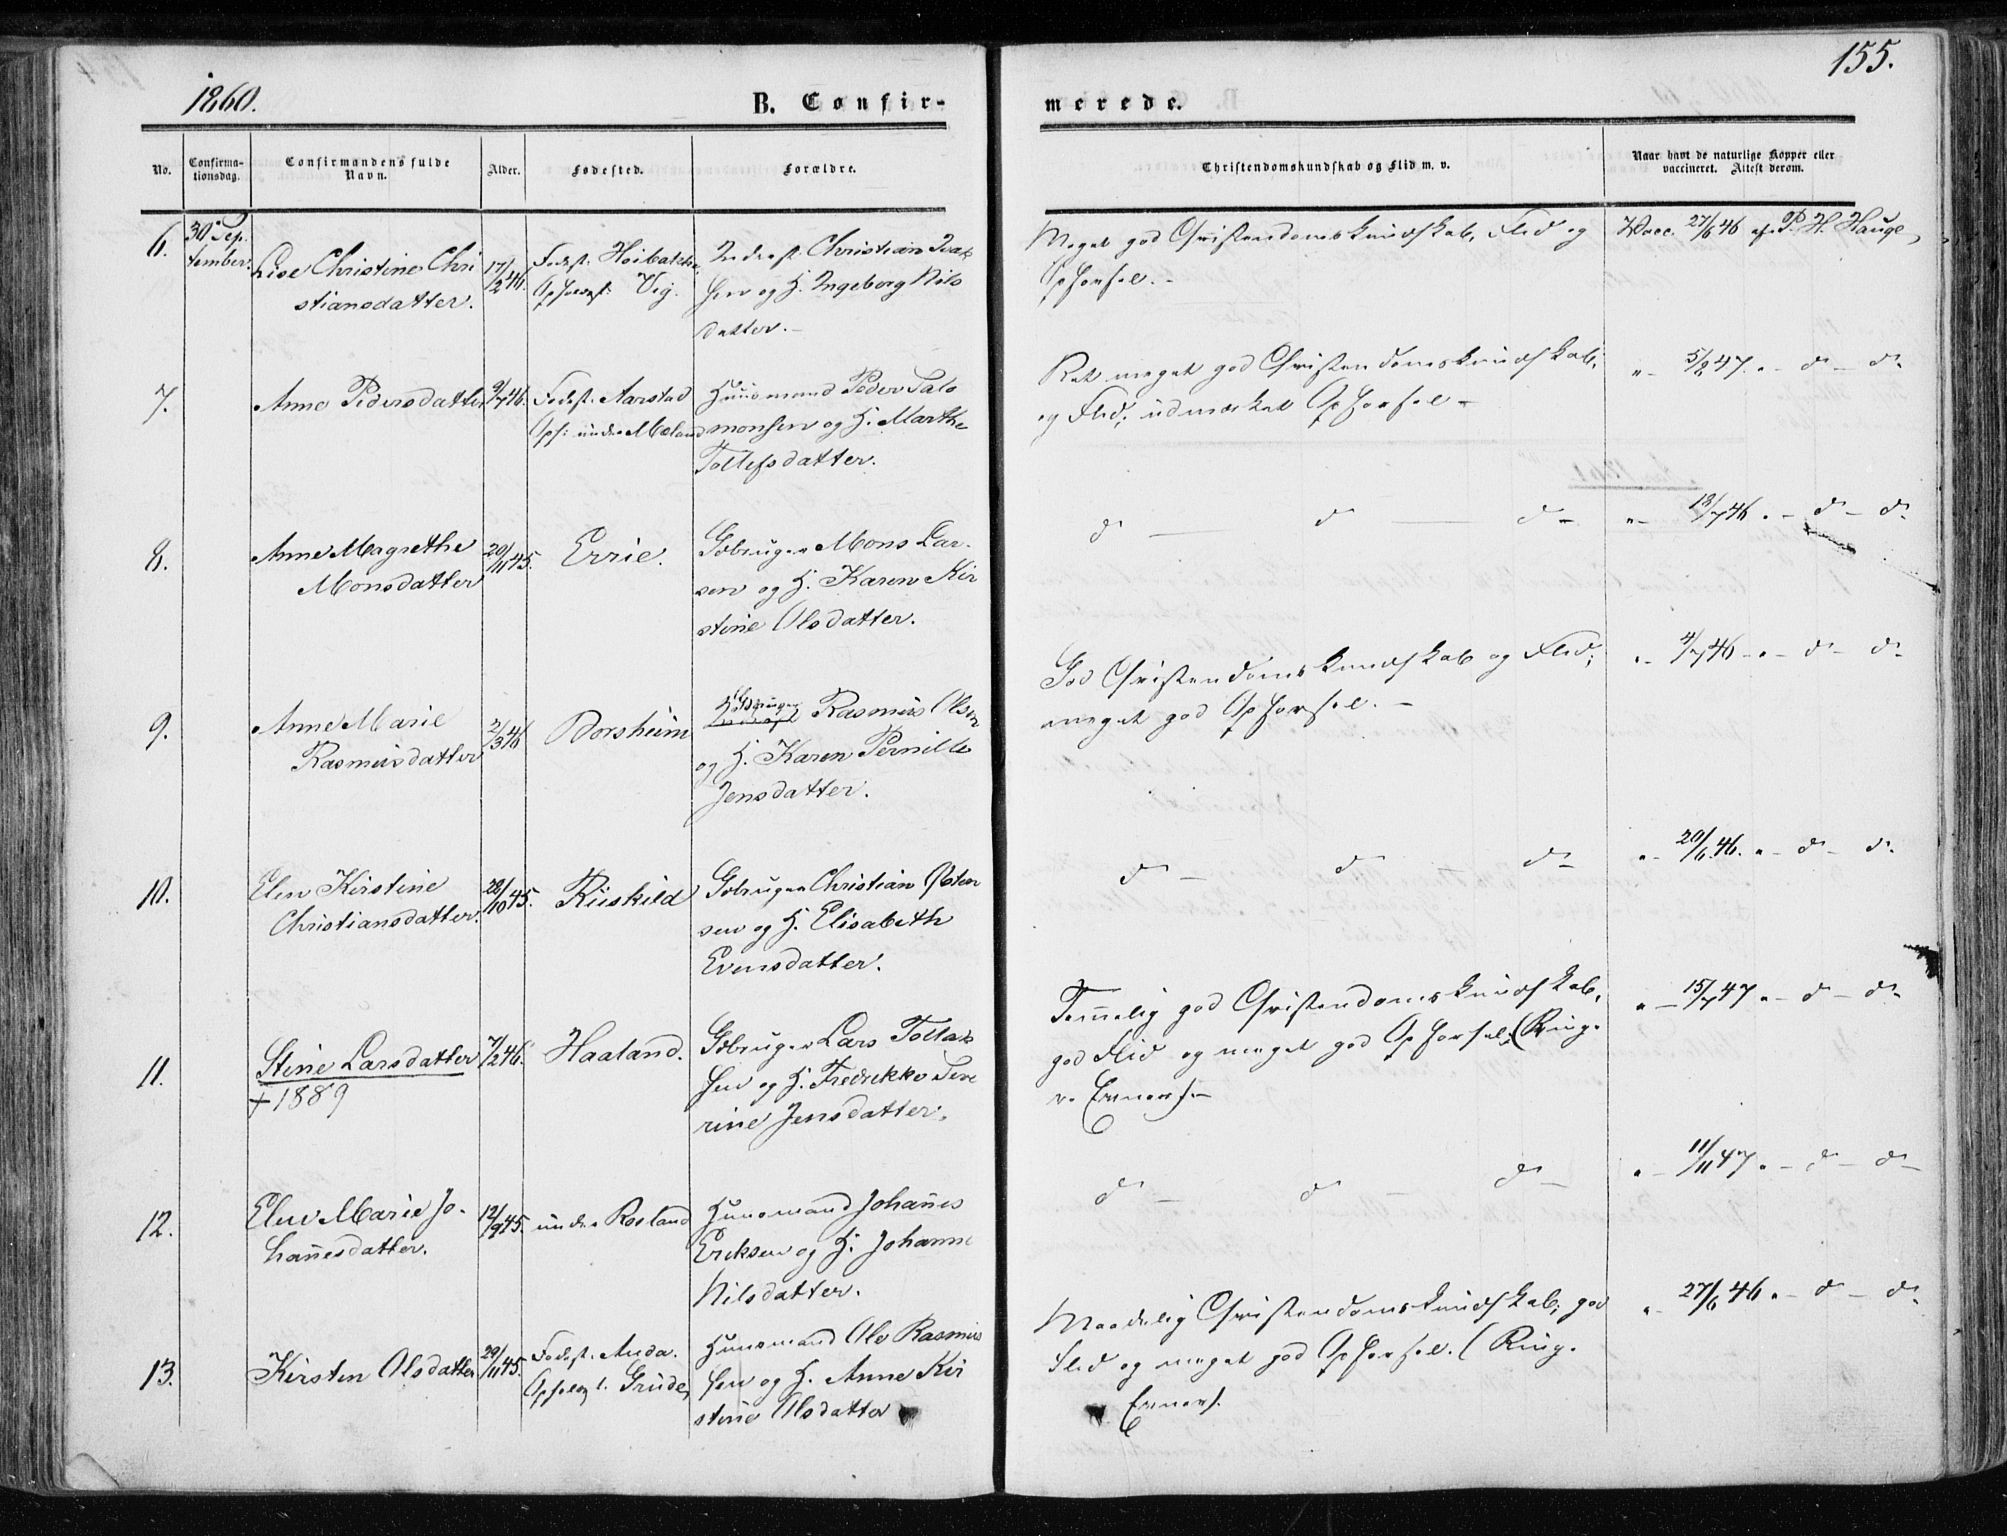 1860.
155.
B. Confir-
merede.
No.
Confirma-
tionsdag.
Confirmandens fulde
Navn.
Alder.
Fødested.
Forældre.
Christendomskundskab og Flid m. v.
Naar havt de naturlige Kopper eller
vaccineret. Attest derom.
6.
30 Sep-
tember.
Lise Christine Chri
stiansdatter.
17/2 46.
Fødest. Høibakke
Opholdsst. Vig.
Inderst Christian Isak
sen og H. Ingeborg Nils
datter.
Meget god Christendomskundskab, Flid og
Opførsel.
Vacc. 27/6 46 af P. H. Hauge,
7.
Anne Pedersdatter
9/7 46.
Fødest. Aarstad
Oph: under Mæland
Huusmand Peder Salo
monsen og H. Marthe
Tollefsdatter.
Ret meget god Christendomskundskab,
og Flid; udmærket Opførsel
" - 5/2 47. " - do - do
8.
Anne Magrethe
Monsdatter
20/11 45.
Errie.
Gbruger Mons Lar-
sen og H. Karen Kir
stine Olsdatter.
do - do - do -
" - 18/7 46. - do - do
9.
Anne Marie
Rasmusdatter
2/3 46
Borsheim
Gbruger
Rasmus Olsen
og H. Karen Pernille
Jensdatter.
God Christendomskundskab og Flid;
meget god Opførsel. -
" - 4/7 46 - " - do - do
10.
Elen Kirstine
Christiansdatter.
28/10 45.
Riiskild
Gbruger Christian Osten
sen og H. Elisabeth
Evensdatter.
do - do do -
" - 20/6 46. " - do - do
11.
Stine Larsdatter
+ 1889
7/2 46.
Haaland.
Gbruger Lars Tollak
sen og H. Fredrikke Seve
rine Jensdatter.
Temmelig god Christendomskundskab,
god Flid og meget god Opførsel; (Ring-
e Evner). -
" - 15/7 47 " - do - do
12.
Elen Marie Jo-
hannesdatter.
12/9 45.
under Rosland
Huusmand Johannes
Eriksen og H. Johanne
Nilsdatter.
do - do do -
" - 11/11 47 " - do - do -
13.
Kirsten Olsdatter
29/11 45.
Fødest. Auda.
Grude,
Huusmand Ole Rasmus
sen og H. Anne Kir
stine Olsdatter
Maadelig Christendomskundskab; god
Flid og meget god Opførsel. (Ring-
e Evner).
" - 27/6 46 " - do - do